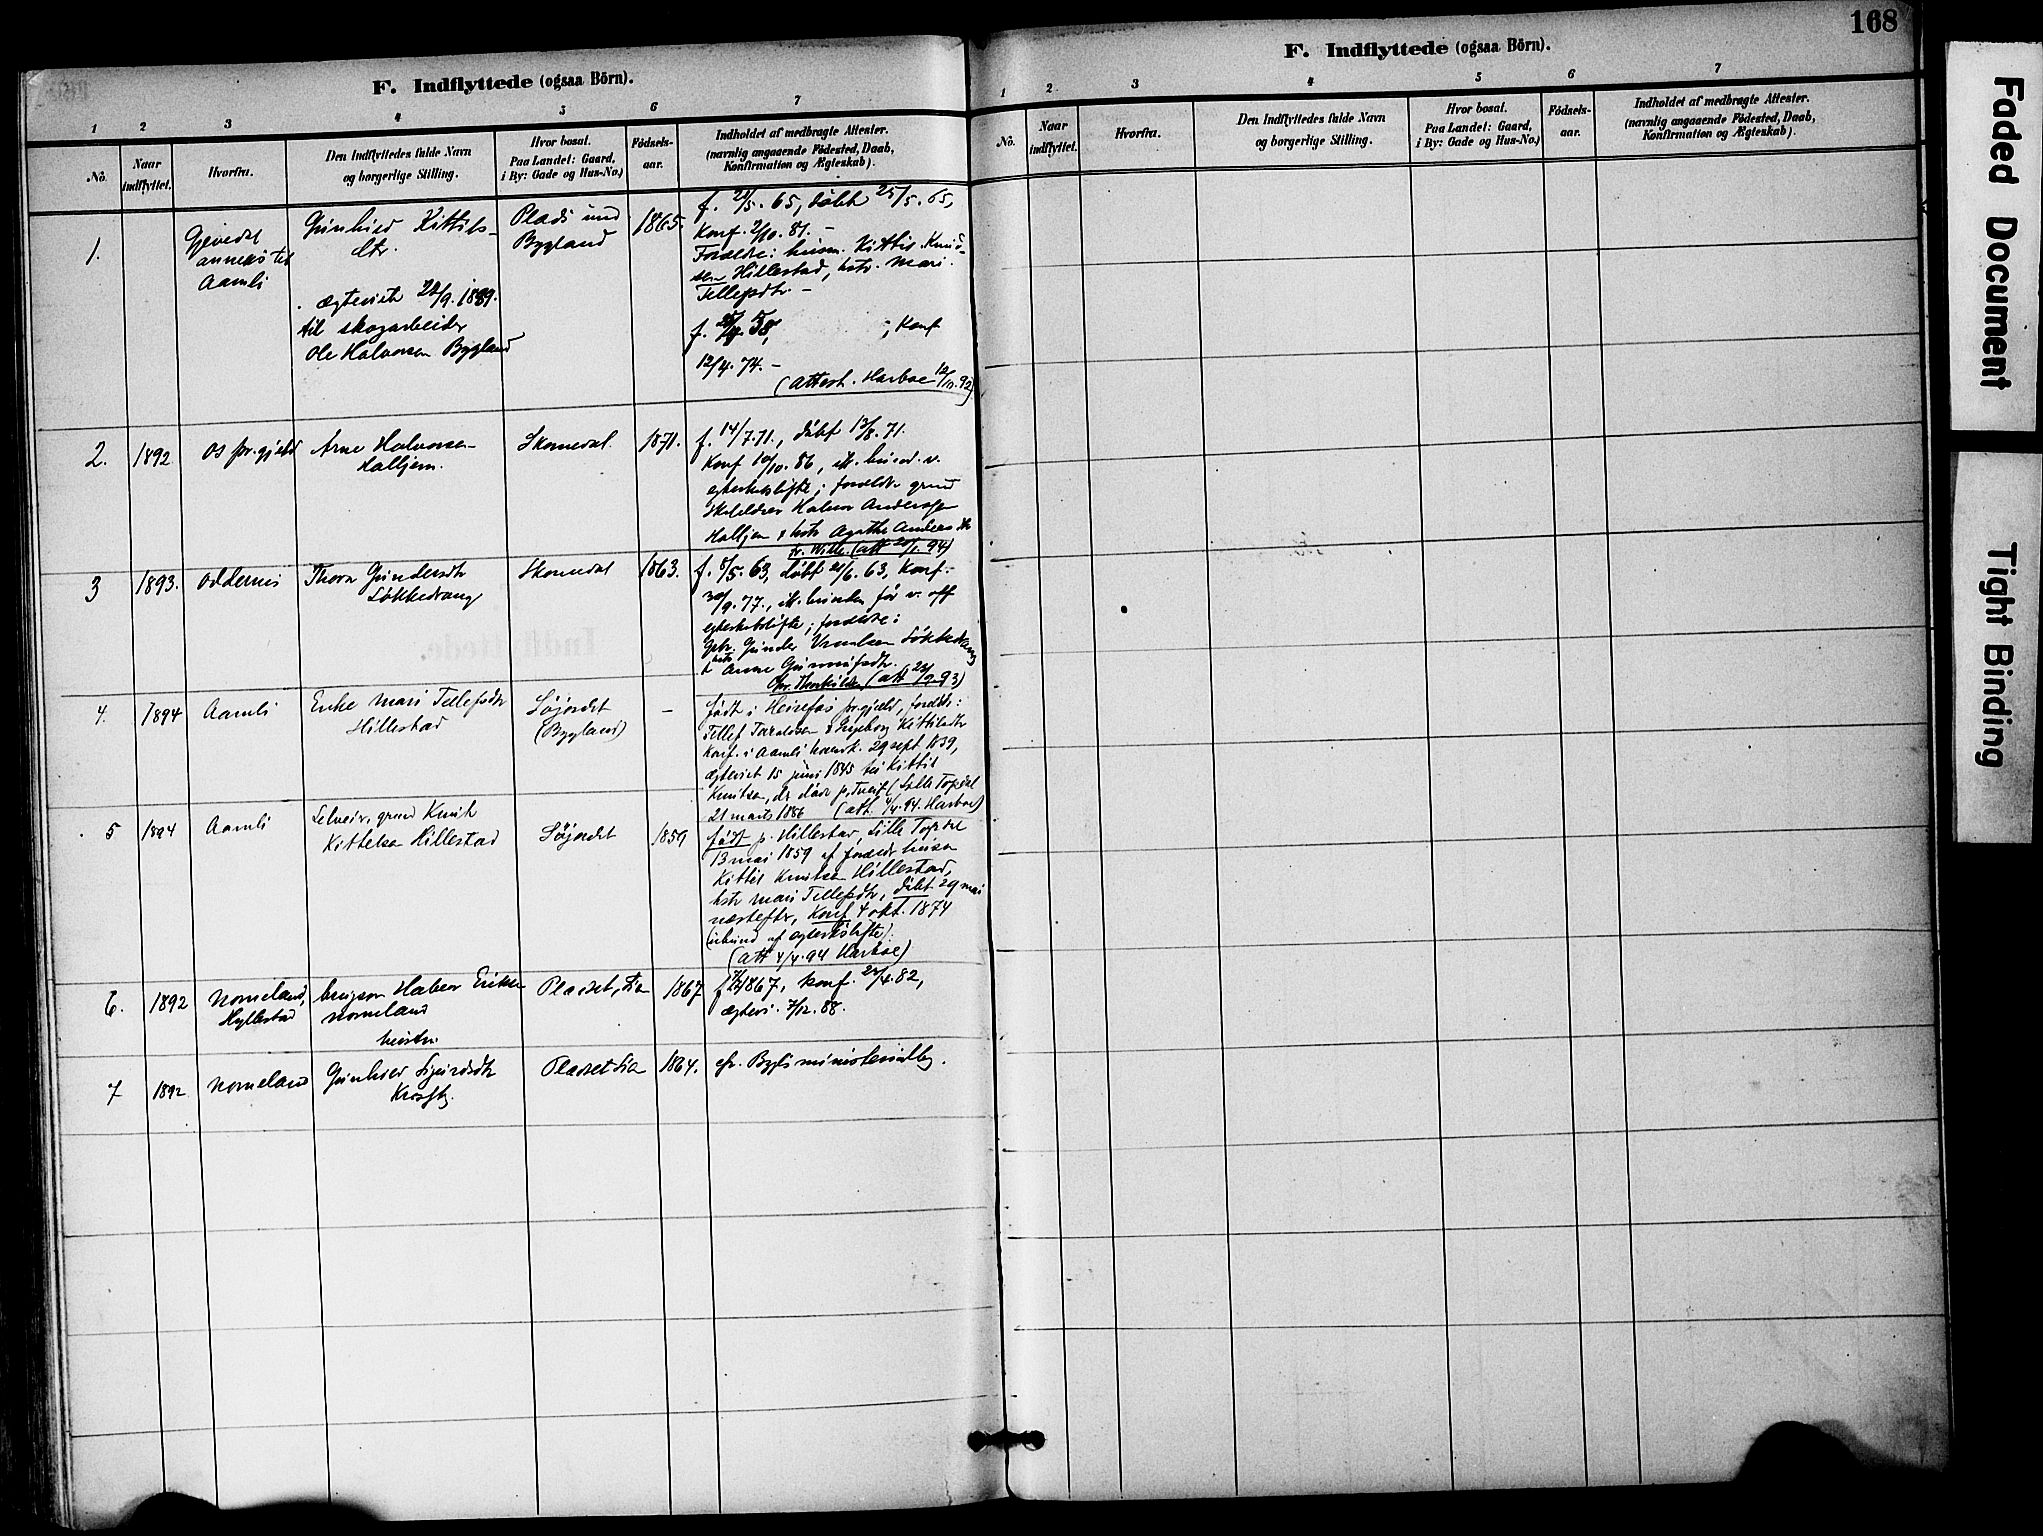 168
F. Indflyttede (ogsaa Börn).
1 2 3 4 5 6 7
No.
Naar indflyttet.
Hvorfra.
Den Indflyttedes fulde Navn
og borgerlige Stilling.
Hvor bosat.
Paa Landet: Gaard,
i By: Gade og Hus-No.)
Födsels-
aar.
Indholdet af medbragte Attester.
(navnlig angaaende Födested, Daab,
Konfirmation og Ægteskab).
1.
Gjevedal
anneks til
Aamli
Gunhild Kittils-
dtr.
ægteviet 28/9. 1889.
til skogarbeider
Ole Halvorsen Bygland
Plads und
Bygland
1865.
døbt 25/5. 65,
Konf. 2/10. 81. –
Forældre: husm. Kittil Knud-
sen Hillestad, hstr. Mari
Tellefsdtr. –
; Konf
12/4. 74. –
(Attest. Harboe 12/10. 92)
2.
1892
Os pr.gjeld
Arne Halvorsen
Halljem.
Skomedal
1871.
f. 14/7. 71., døbt 13/8. 71.
Konf 10/10. 86,
forældr
Halvor Andersen
Halljem & hstr Agathe Andersdtr
(att 20/1. 94)
3
1893.
Oddernes
Thora Gundersdtr
Løkkedrang
Skomedal
1863.
f. 8/5. 63, døbt 21/6. 63, Konf.
30/9. 77., forældre:
Gunder Løkkedrang
& hstr Anne
(att 23/9. 93)
4.
1894
Aamli
Enke Mari Tellefsdtr
Hillestad
Søjordet
(Bygland)
–
født i Heirefos pr.gjeld, forældr:
Tellef Taraldsen & Ingeborg Kittilsdtr
Konf. i Aamli hovedk. 29 sept 1839,
ægteviet 15 juni 1845 til Kittil
Knutsen, der døde p. Tveit (Lille Topdal
21 marts 1886 (att. 4/4. 94. Harboe)
5
1894
Aamli
Selveir, grund Knut
Kittelsen Hillestad
Søjordet
1859
født p. Hillestad, Lille Topdal
13 mai 1859 af forældr husm
Kittil Knutsen Hillestad,
hstr Mari Tellefsdtr, døbt 29 mai
næstefter, Konf 4 okt. 1874
(ubund af egtesksløfte).
(att 4/4. 94 Harboe)
6.
1892
Nomeland,
Hyllestad
brugsm Halvor Eriksen
Nomeland
hustru
Pladset, Lia
1867
1867, konf. 23/4. 82,
ægtevi. 7/12. 88.
7
1892
Nomeland
Gunhild Sigurdsdtr
Pladset Lia
1864.
cfr. Bygls ministerialbog.
F. Indflyttede (ogsaa Börn).
1 2 3 4 5 6 7
No.
Naar
indflyttet.
Hvorfra.
Den Indflyttedes fulde Navn
og borgerlige Stilling.
Hvor bosat.
Paa Landet: Gaard,
i By: Gade og Hus-No.)
Födsels-
aar.
Indholdet af medbragte Attester.
(navnlig angaaende Födested, Daab,
Konfirmation og Ægteskab).
Faded Document
Tight Binding